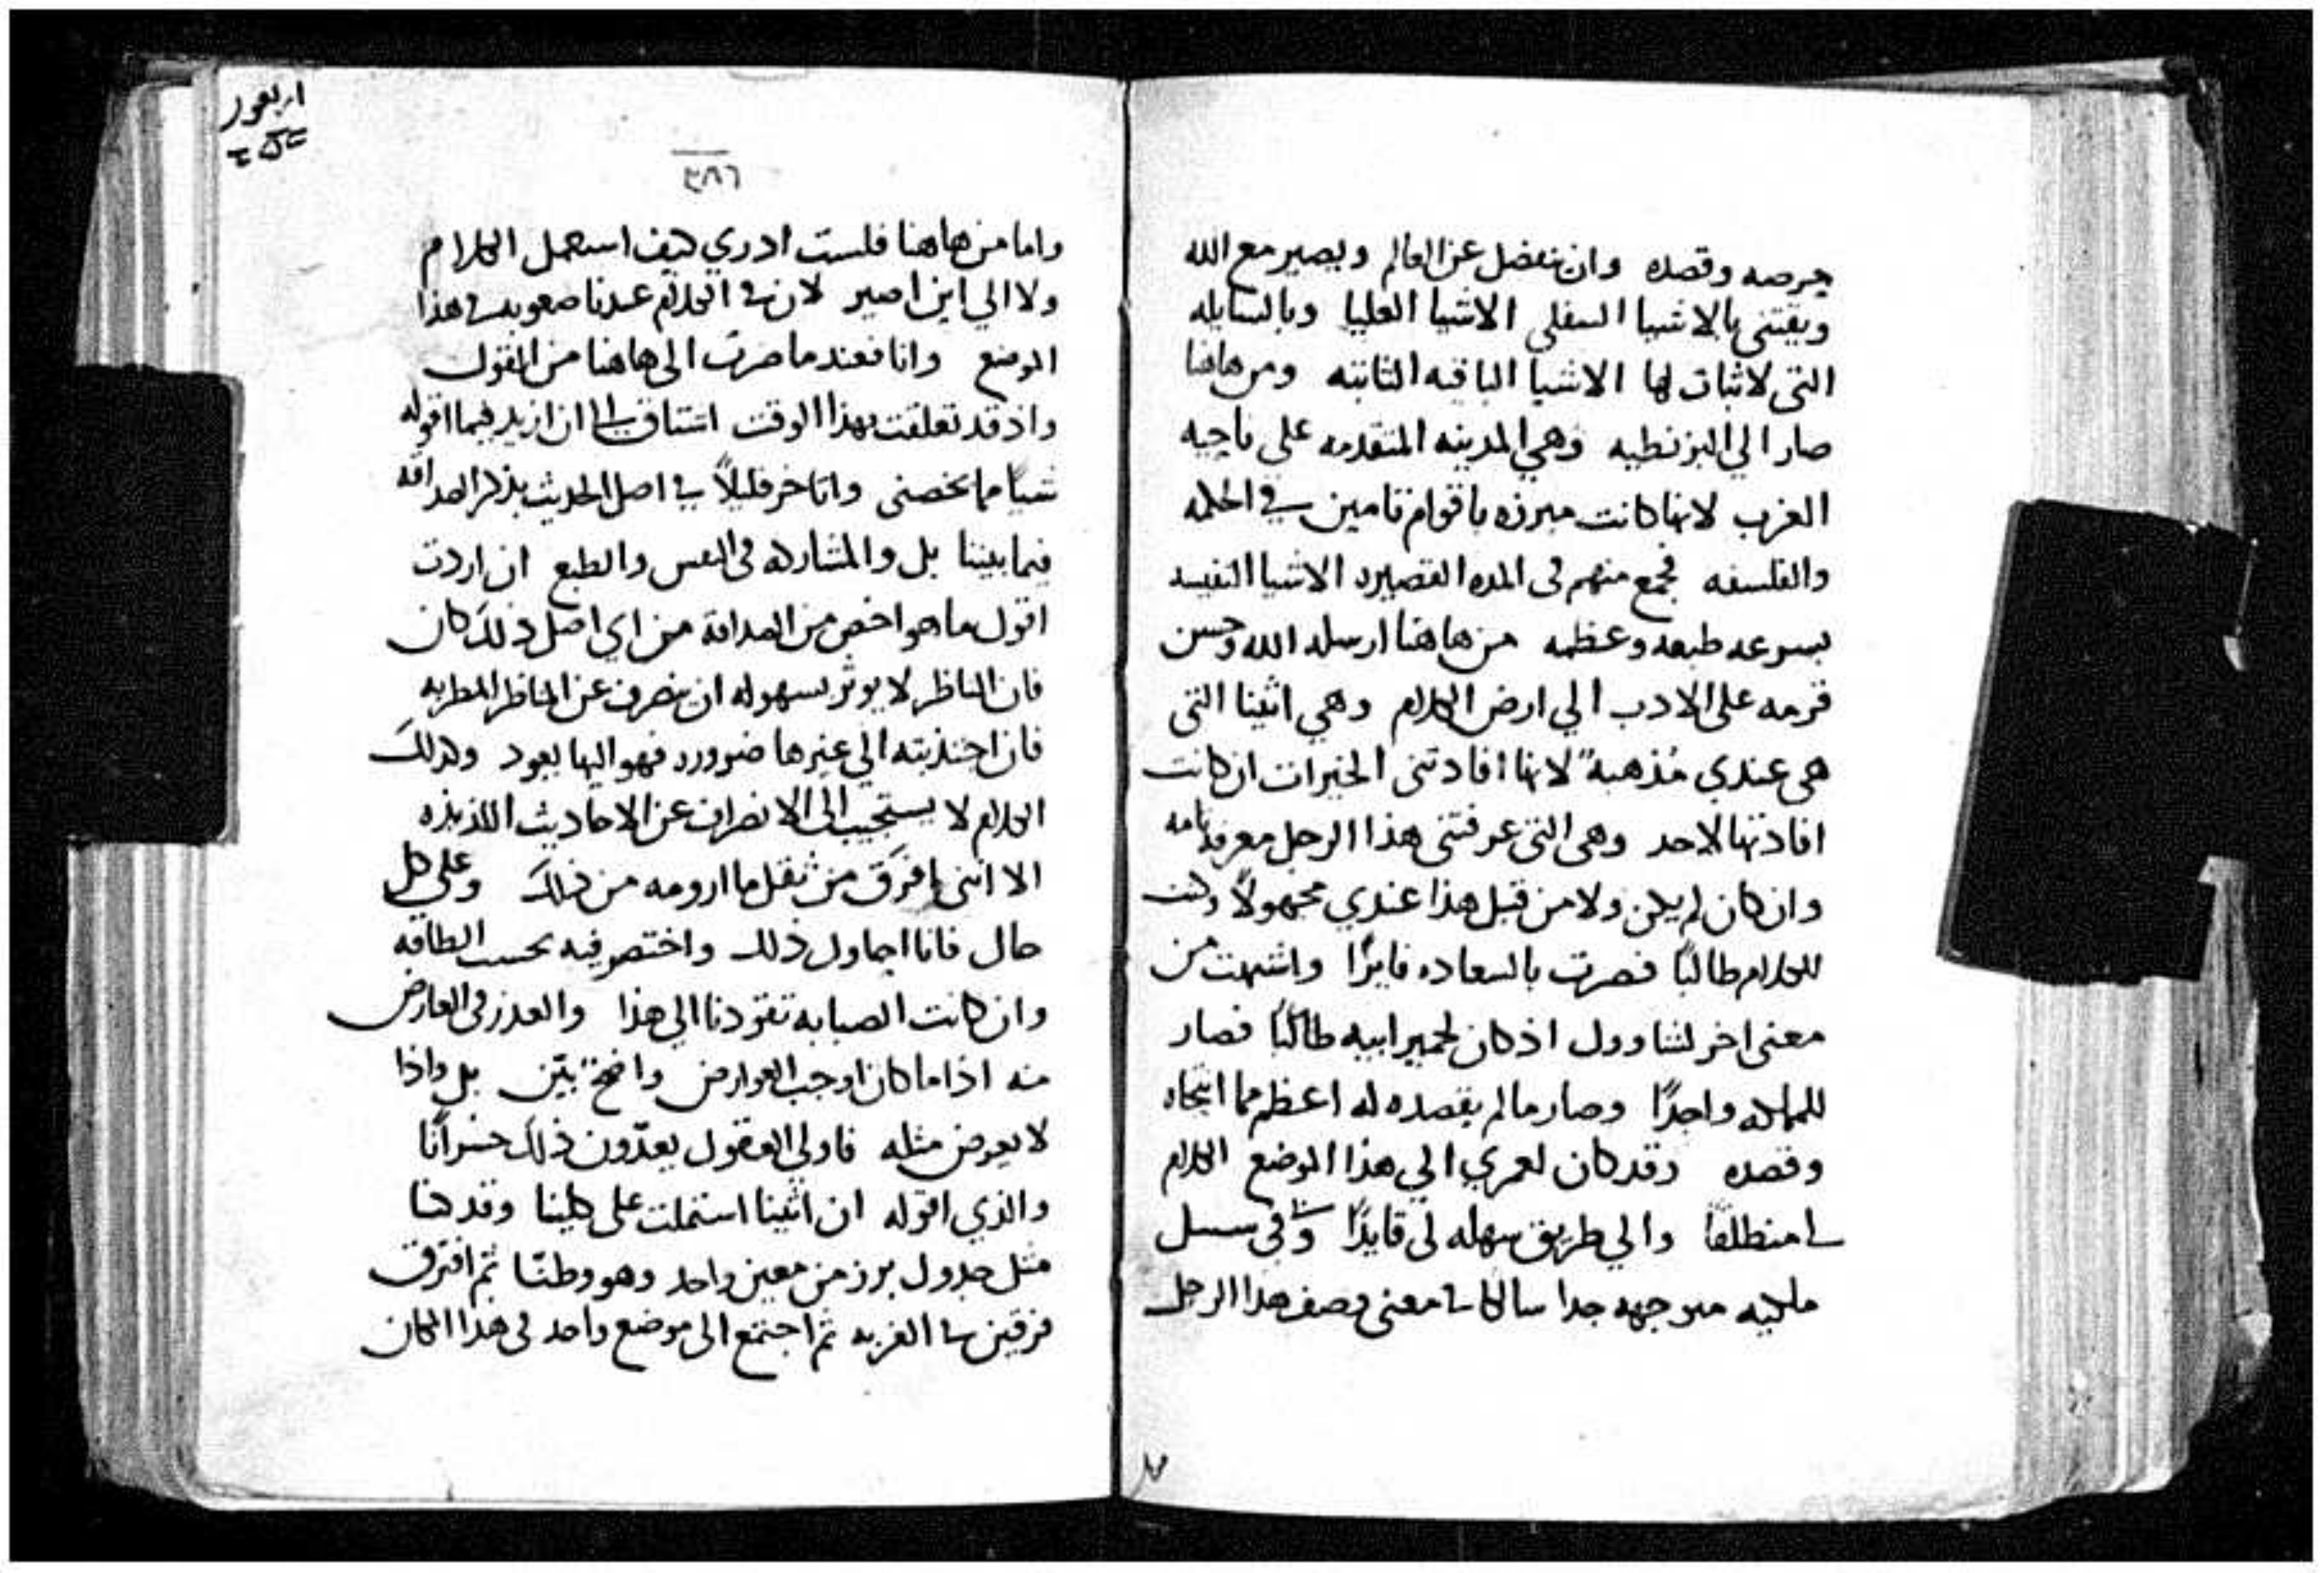 حرصه وقصده وان ينفصل عن العالم ويصير مع الله
ويقتني بالاشيا السفلى الاشيا العليا وبالسايله
التي لا ثبات لها الاشيا الباقيه الثابته ومن هاهنا
صار الي البزنطيه وهي المدينه المتقدمه على ناحيه
الغرب لانها كانت مبرزه باقوام تامين في الحكمه
والفلسفه فجمع منهم في المده القصيره الاشيا النفيسه
بسرعه طبعه وعظمه من هاهنا ارسله الله وحسن
قرمه على الادب الي ارض الكلام وهي اثينا التي
هي عندي مُذهبة لانها افادتني الخيرات ان كانت
افادتها لاحد وهي التي عرفتني هذا الرجل معرفه تامه
وان كان لم يكن ولا من قبل هذا عندي مجهولاً وكنت
للكلام طالبًا فصرت بالسعاده فايزًا
معنى اخر لشاوول اذ كان لحمير ابيه طالبًا فصار
للمملكه واجدًا وصار ما لم يقصده له اعظم مما انتحاه
وقصده وقد كان لعمري الي هذا الموضع الكلام
لي منطلقًا والي طريق سهله لي قايدًا وفي سبيل
ملكيه جدا سالكا في معنى وصف هذا الرجل
اربعون
٣٨٦
واما من هاهنا فلست ادري كيف استعمل الكلام
ولا الي اين اصير لان في الكلام عندنا صعوبه في هذا
الموضع وانا فعندما صرت الى هاهنا من القول
واذ قد تعلقت بهذا الوقت اشتاق الى ان ازيد فيما اقوله
شيًا مما يخصني واتاخر قليلاً في اصل الحديث بذكر الصداقه
فيما بيننا بل والمشاركه في النفس والطبع ان اردت
اقول ما هو اخص من الصداقة من اي اصل ذلك كان
فان الناظر لا يوثر بسهوله ان ينصرف عن المناظر المطربه
فان اجتذبته الي غيرها ضروره فهو اليها يعود وكذلك
الكلام لا يستجيب الى الانصراف عن الاحاديث اللذيذه
الا انني افرَق من ثقل ما ارومه من ذلك وعلى كل
حال فانا احاول ذلك واختصر فيه بحسب الطاقه
وان كانت الصبابه تقودنا الي هذا والعذر في العارض
منه اذا ما كان اوجب العوارض واضحٌ بيّن بل واذا
لا يعرض مثله فاولي العقول يعدّون ذلك خسرانًا
والذي اقوله ان اثينا اشتملت على كلينا وقد كنا
مثل جدول برز من معين واحد وهو وطننا ثم افترق
فرقين في الغربه ثم اجتمع الى موضع واحد في هذا المكان